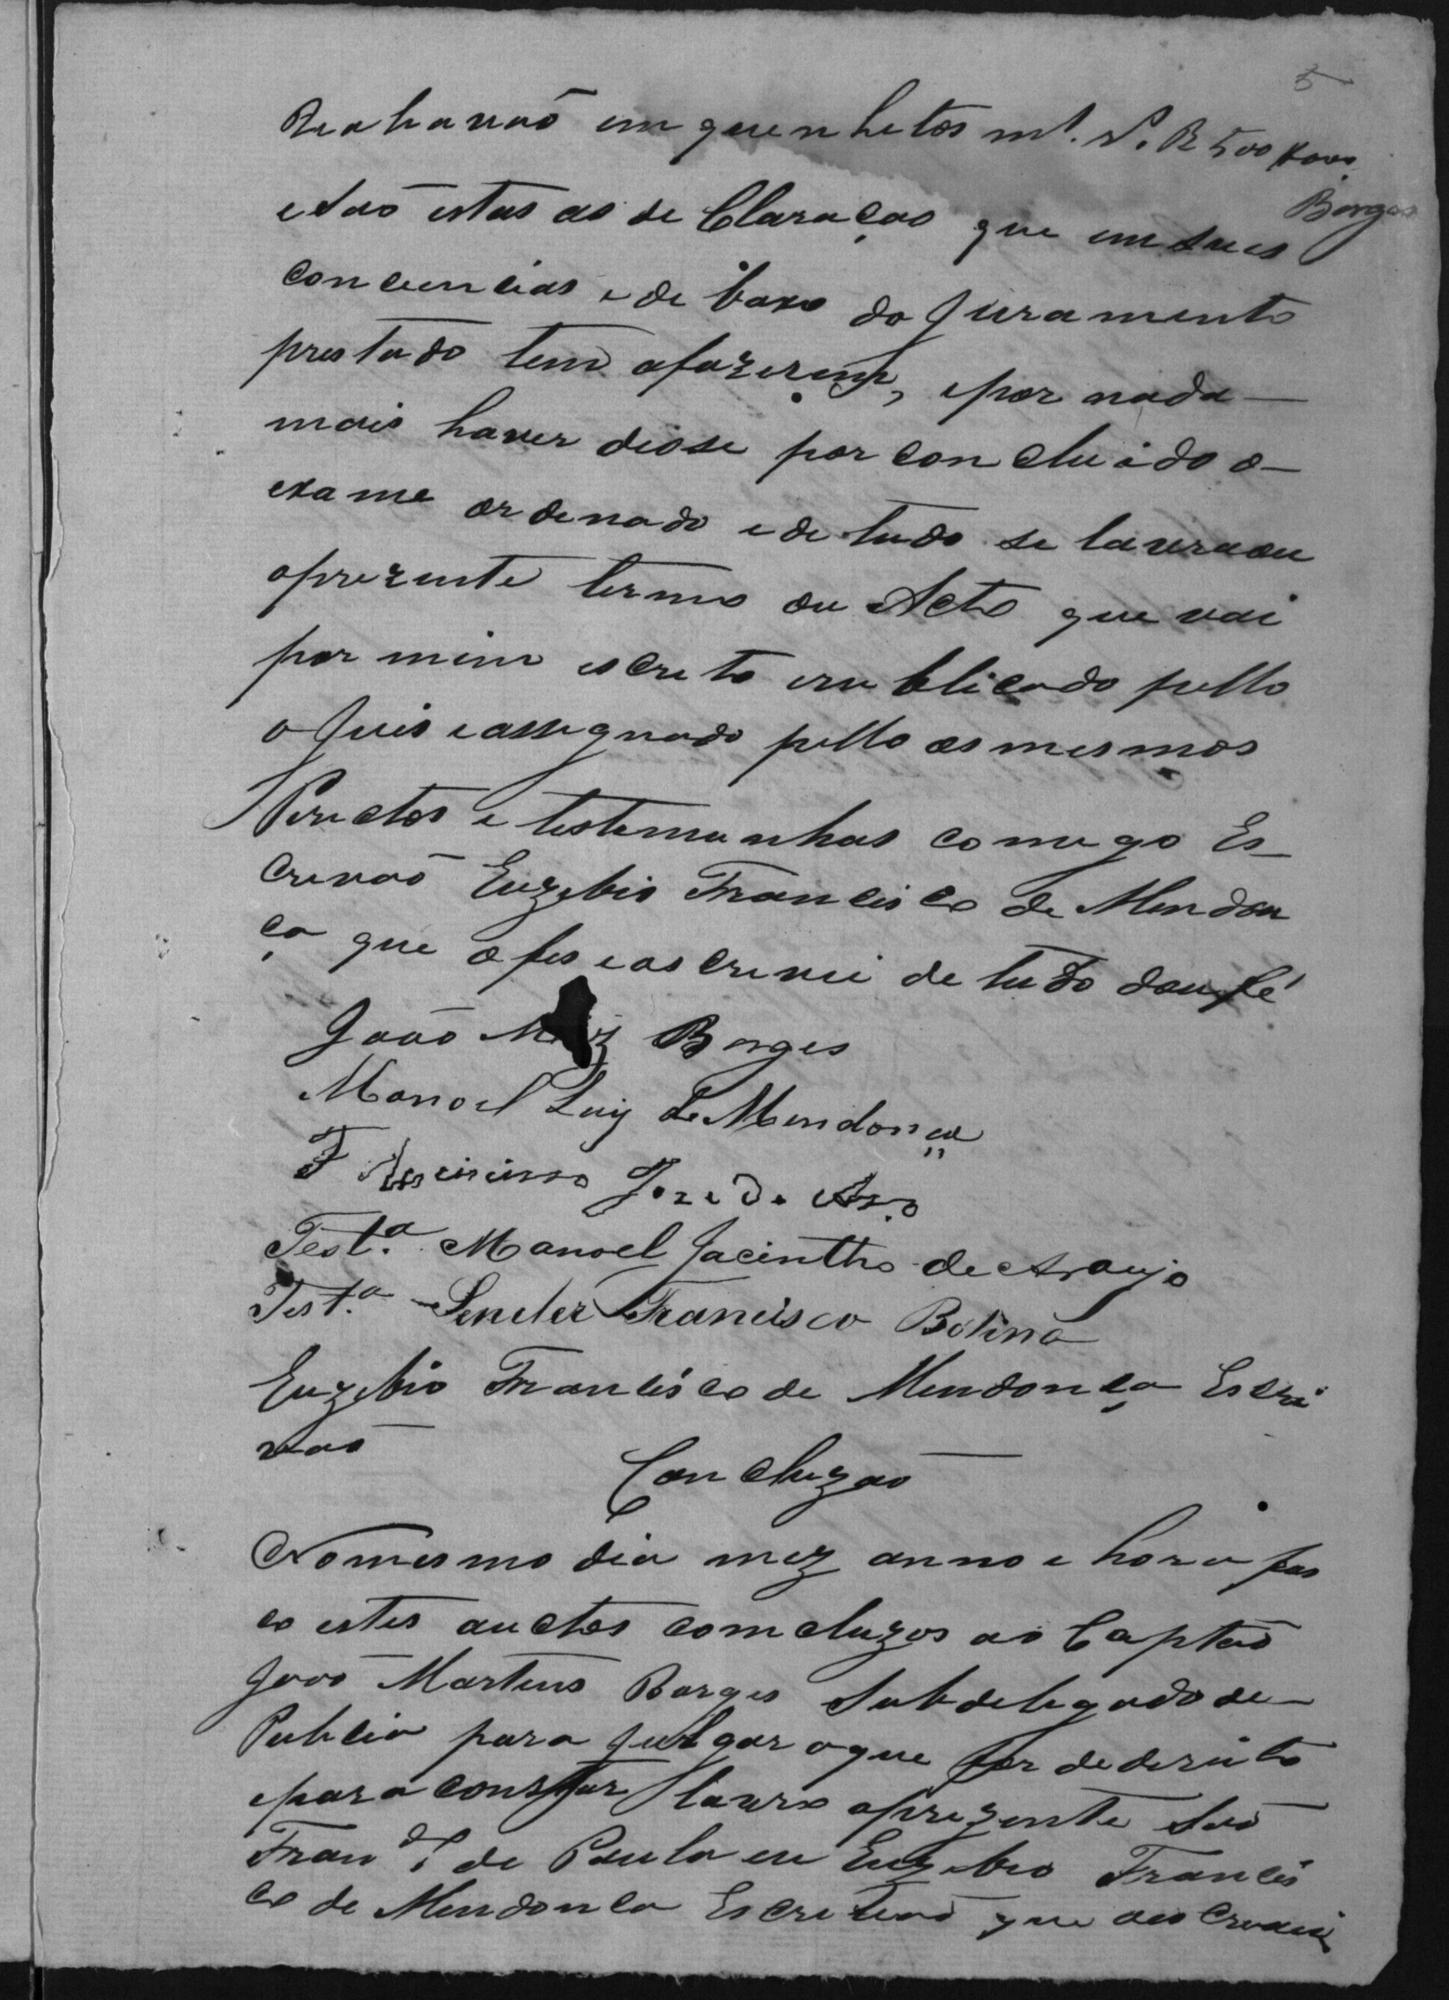 5
Reahavaõ em quenhetos mil r.s R 500 $000
Borges
e Saõ estas as de Claraçaõ que em suas
conciencias e de baxo do Juramento
prestado tem afazerem, epor nada
mais haver disse por concluido o
exame ordenado e de tudo se lavraou
oprezente termo ou Acto que vai
por mim escreto erublicado pello
o Juis e assegnado pello os mesmos
Peructos e testemunhas comego Es-
crivaõ Euzebio Francisco de Mendon
ça que o fes e ascrivi de tudo dou fé
João M Borges
Manoel Luiz de Mendonça
F Joze de
Test.a Manoel Jacintho de Araujo
Test.a Francisco Botina
Euzebio Francisco de Mendonça Escri
vaõ
Concluzaõ
No mesmo dia mez anno e hora fas
co estes auctos comcluzos ao Captaõ
Joaõ Martins Borges Subdelegado de
Publcia para Julgar oque for dedereito
epara constar lavro oprezente Saõ
Fran.co de Paula eu Euzebio Francis
co de Mendonca Escrivaõ que oescrevi